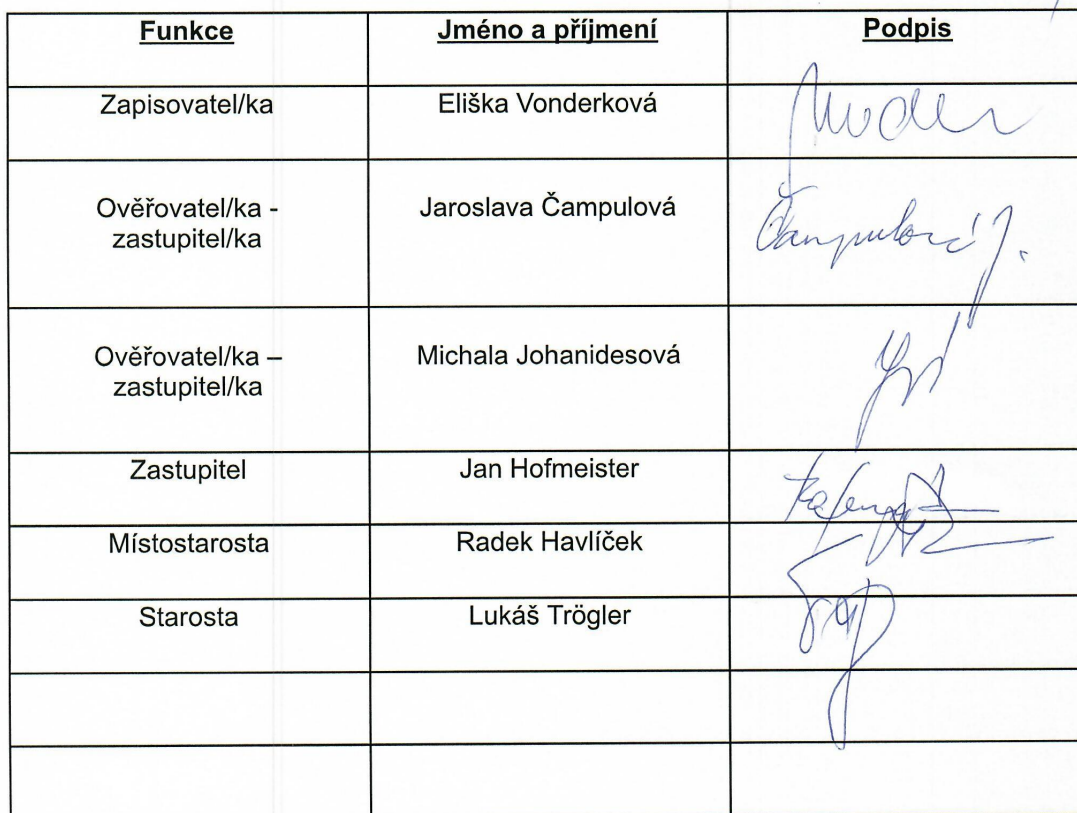 Funkce Jméno a příjmení Podpis
Zapisovatel/ka Eliška Vonderková
Ověřovatel/ka - Jaroslava Čampulová Čampulová J.
zastupitel/ka
Ověřovatel/ka – Michala Johanidesová
zastupitel/ka
Zastupitel Jan Hofmeister
Místostarosta Radek Havlíček
Starosta Lukáš Trögler